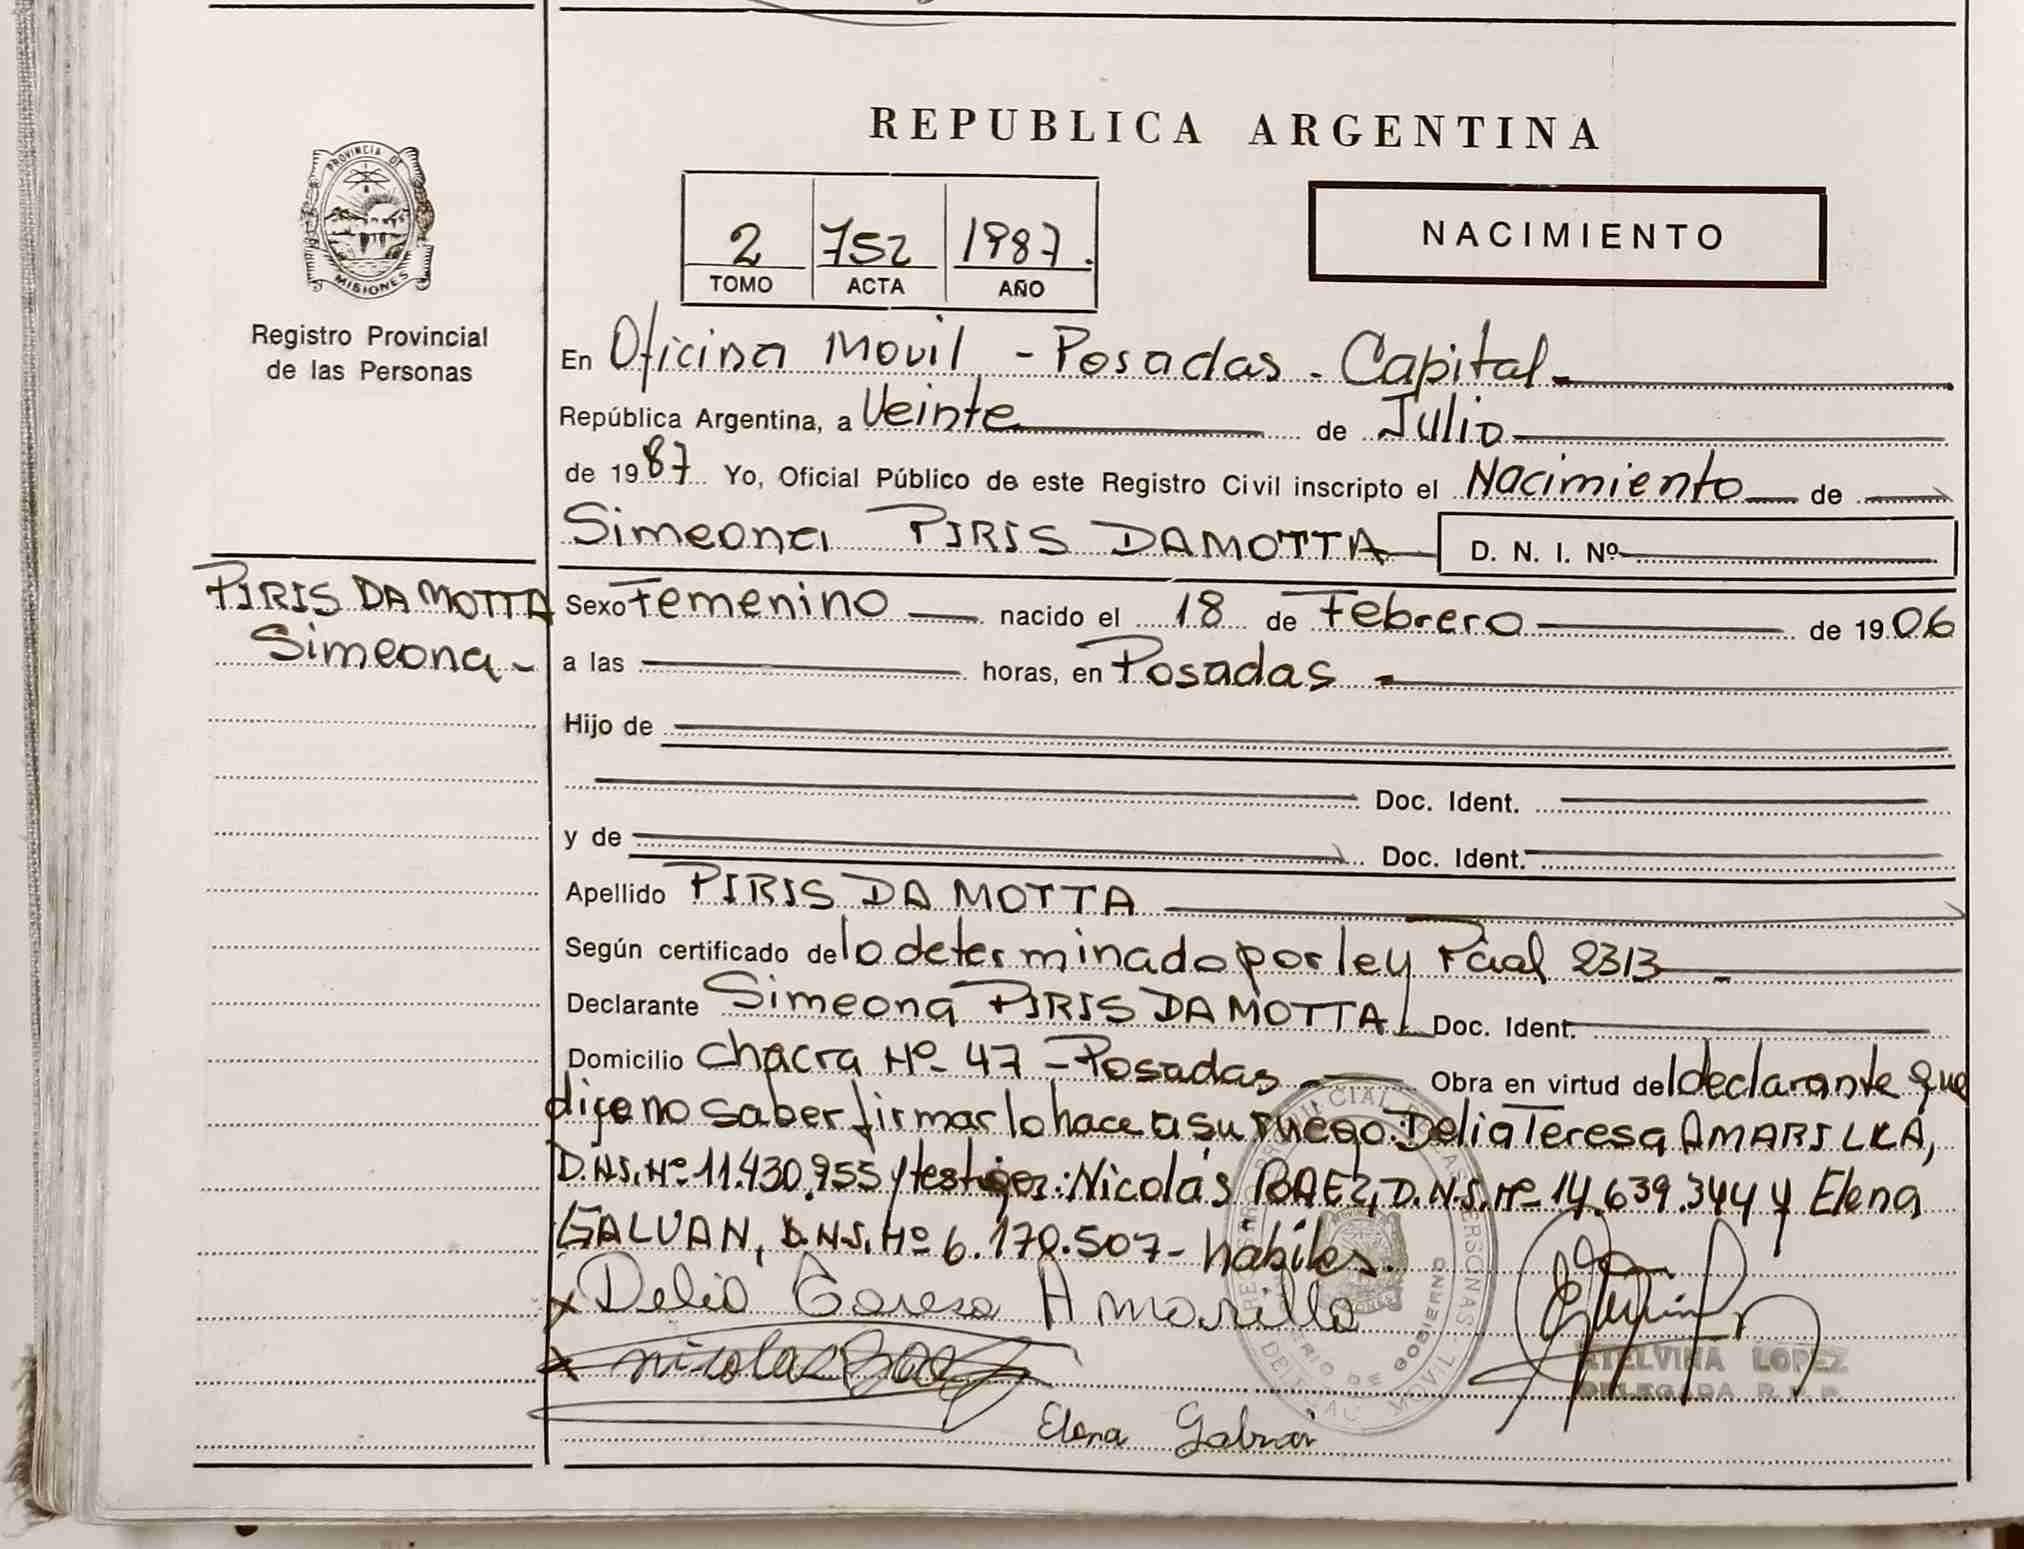 REPUBLICA ARGENTINA
PROVINCIA DE
MISIONES
Registro Provincial
de las Personas
2 752 1987.
TOMO ACTA AÑO
NACIMIENTO
En Oficina Movil - Posadas - Capital
República Argentina, a Veinte de Julio
de 1987 Yo, Oficial Público de este Registro Civil inscripto el Nacimiento de
Simeona PIRIS DAMOTTA D. N. I. Nº
PIRIS DA MOTTA
Simeona
Sexo Femenino nacido el 18 de Febrero de 1906
a las horas, en Posadas
Hijo de
Doc. Ident.
y de Doc. Ident.
Apellido PIRIS DA MOTTA
Según certificado de lo determinado por ley Pcial 2313
Declarante Simeona PIRIS DA MOTTA Doc. Ident.
Domicilio Chacra Nº 47 - Posadas Obra en virtud del declarante que
dice no saber firmar lo hace a su ruego: Delia Teresa
D.N.I. Nº 11.430.955 y testigos: Nicolás BAEZ, D.N.I. Nº 14.639.344 y Elena
GALVAN, D.N.I. Nº 6.170.507 - hábiles.
x Delia Teresa Amarilla
x Nicolas Baez
ETELVINA LOPEZ
DELEGADA R. P. P.
Elena Galvan